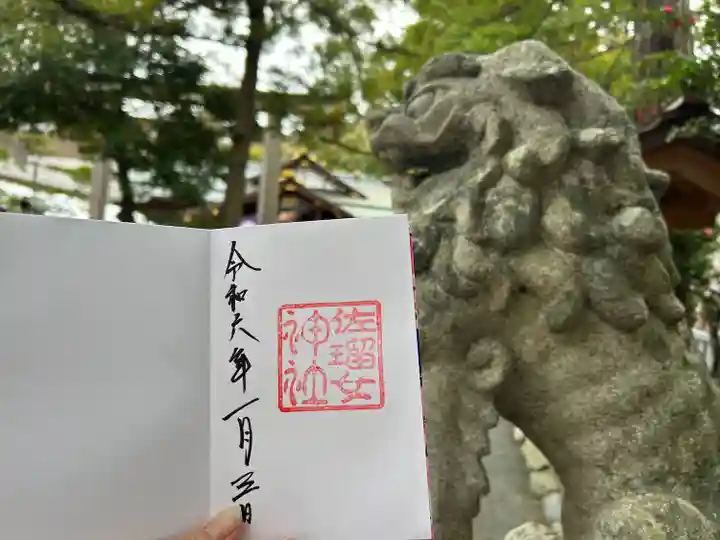 令和六年一月三日
佐瑠女
神社